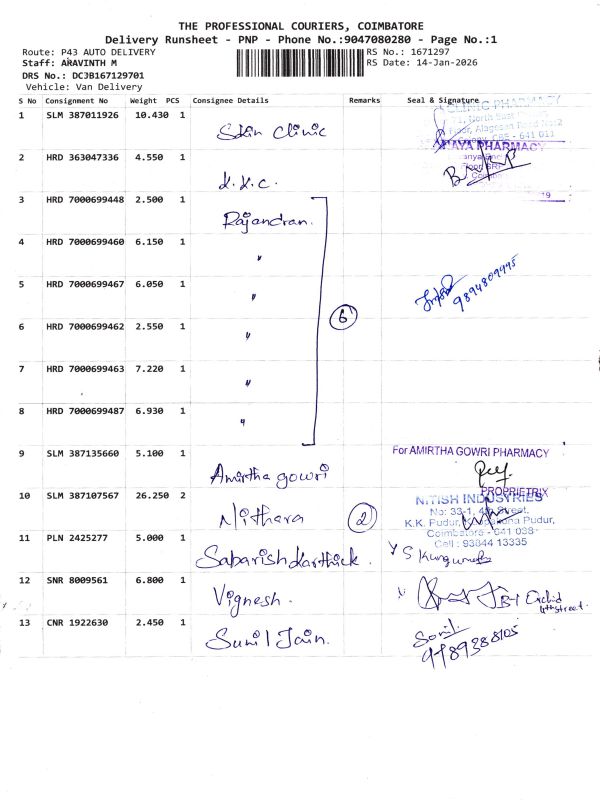 THE PROFESSIONAL COURIERS, COIMBATORE
Delivery Runsheet - PNP - Phone No.:9047080280 - Page No.:1
Route: P43 AUTO DELIVERY
RS No.: 1671297
Staff: ARAVINTH M
RS Date: 14-Jan-2026
DRS No.: DCJB167129701
Vehicle: Van Delivery
S No Consignment No Weight PCS Consignee Details Remarks Seal & Signature
1 SLM 387011926 10.430 1 Skin Clinic
CLINIC PHARMACY
71, North East
Floor, Alagesan Road No:2
CBE - 641 011
2 HRD 363047336 4.550 1 K.K.C.
PHARMACY
3 HRD 7000699448 2.500 1 Rajandran.
4 HRD 7000699460 6.150 1 "
5 HRD 7000699467 6.050 1 "
9894809995
6 HRD 7000699462 2.550 1 "
6
7 HRD 7000699463 7.220 1 "
8 HRD 7000699487 6.930 1 "
9 SLM 387135660 5.100 1 Amirtha gowri
For AMIRTHA GOWRI PHARMACY
PROPRIETRIX
10 SLM 387107567 26.250 2 Nithara 2
NITISH INDUSTRIES
No: 33-1, 4th Street,
K.K. Pudur, Pudur,
Coimbatore - 641 038
Cell : 93644 13335
11 PLN 2425277 5.000 1 Sabarish karthick.
12 SNR 8009561 6.800 1 Vignesh.
B-1 Orchid
4th street.
13 CNR 1922630 2.450 1 Sunil Jain.
Sunil
9489388105